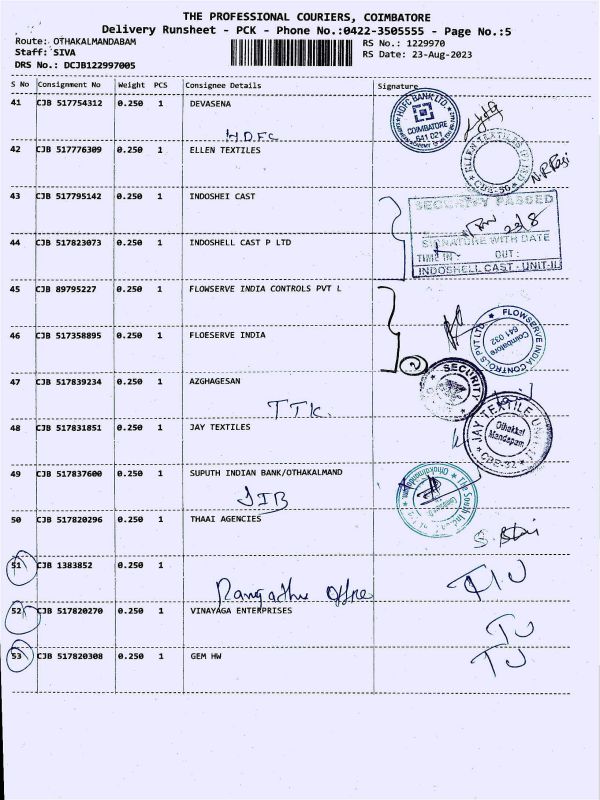 THE PROFESSIONAL COURIERS, COIMBATORE
Delivery Runsheet - PCK - Phone No.:0422-3505555 - Page No.:5
Route: OTHAKALMANDABAM RS No.: 1229970
Staff: SIVA RS Date: 23-Aug-2023
DRS No.: DCJB122997005
S No Consignment No Weight PCS Consignee Details Signature
41 CJB 517754312 0.250 1 DEVASENA
HDFC BANK LTD.
COIMBATORE
641 021
HDFC
42 CJB 517776309 0.250 1 ELLEN TEXTILES
ELLEN TEXTILES (P) LTD
CBE-50
43 CJB 517795142 0.250 1 INDOSHEI CAST
SECURITY PASSED
44 CJB 517823073 0.250 1 INDOSHELL CAST P LTD
SIGNATURE WITH DATE
TIME IN - OUT :
INDOSHELL CAST - UNIT-II
45 CJB 89795227 0.250 1 FLOWSERVE INDIA CONTROLS PVT L
46 CJB 517358895 0.250 1 FLOESERVE INDIA
FLOWSERVE INDIA CONTROLS PVT LTD
Coimbatore
641 032
2
47 CJB 517839234 0.250 1 AZGHAGESAN
SECURITY
TTK.
48 CJB 517831851 0.250 1 JAY TEXTILES
JAY TEXTILE UNIT
Othakkal
Mandapam
CBE-32
49 CJB 517837600 0.250 1 SUPUTH INDIAN BANK/OTHAKALMAND
The South Indian
Othakalmandapam
SIB
50 CJB 517820296 0.250 1 THAAI AGENCIES
51 CJB 1383852 0.250 1
Office
52 CJB 517820270 0.250 1 VINAYAGA ENTERPRISES
53 CJB 517820308 0.250 1 GEM HW